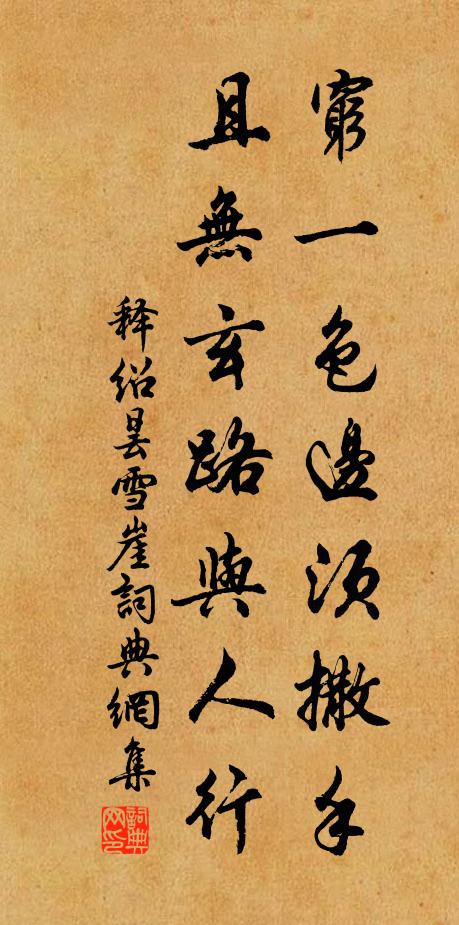 窮一色邊須撒手
且無玄路與人行
释绍昙雪崖詞典網集
詞典网印